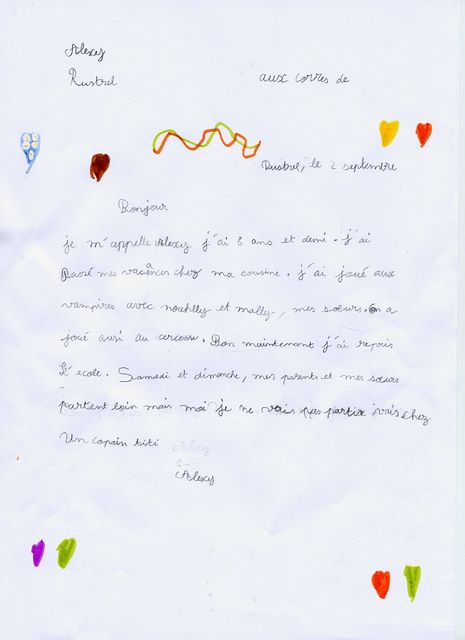 Alexy
Rustrel aux corres de
Rustrel, le 2 septembre
Bonjour
je m'appelle Alexy j'ai 8 ans et demi. j'ai
Passé mes vacances chez ma cousine. j'ai joué aux
vampires avec et mally, mes sœurs. On a
joué aussi au cerceau. Bon maintenant j'ai repris
L'école. Samedi et dimanche, mes parents et mes sœurs
partent loin mais moi je ne vais pas partir vais chez
Un copain titi
Alexy